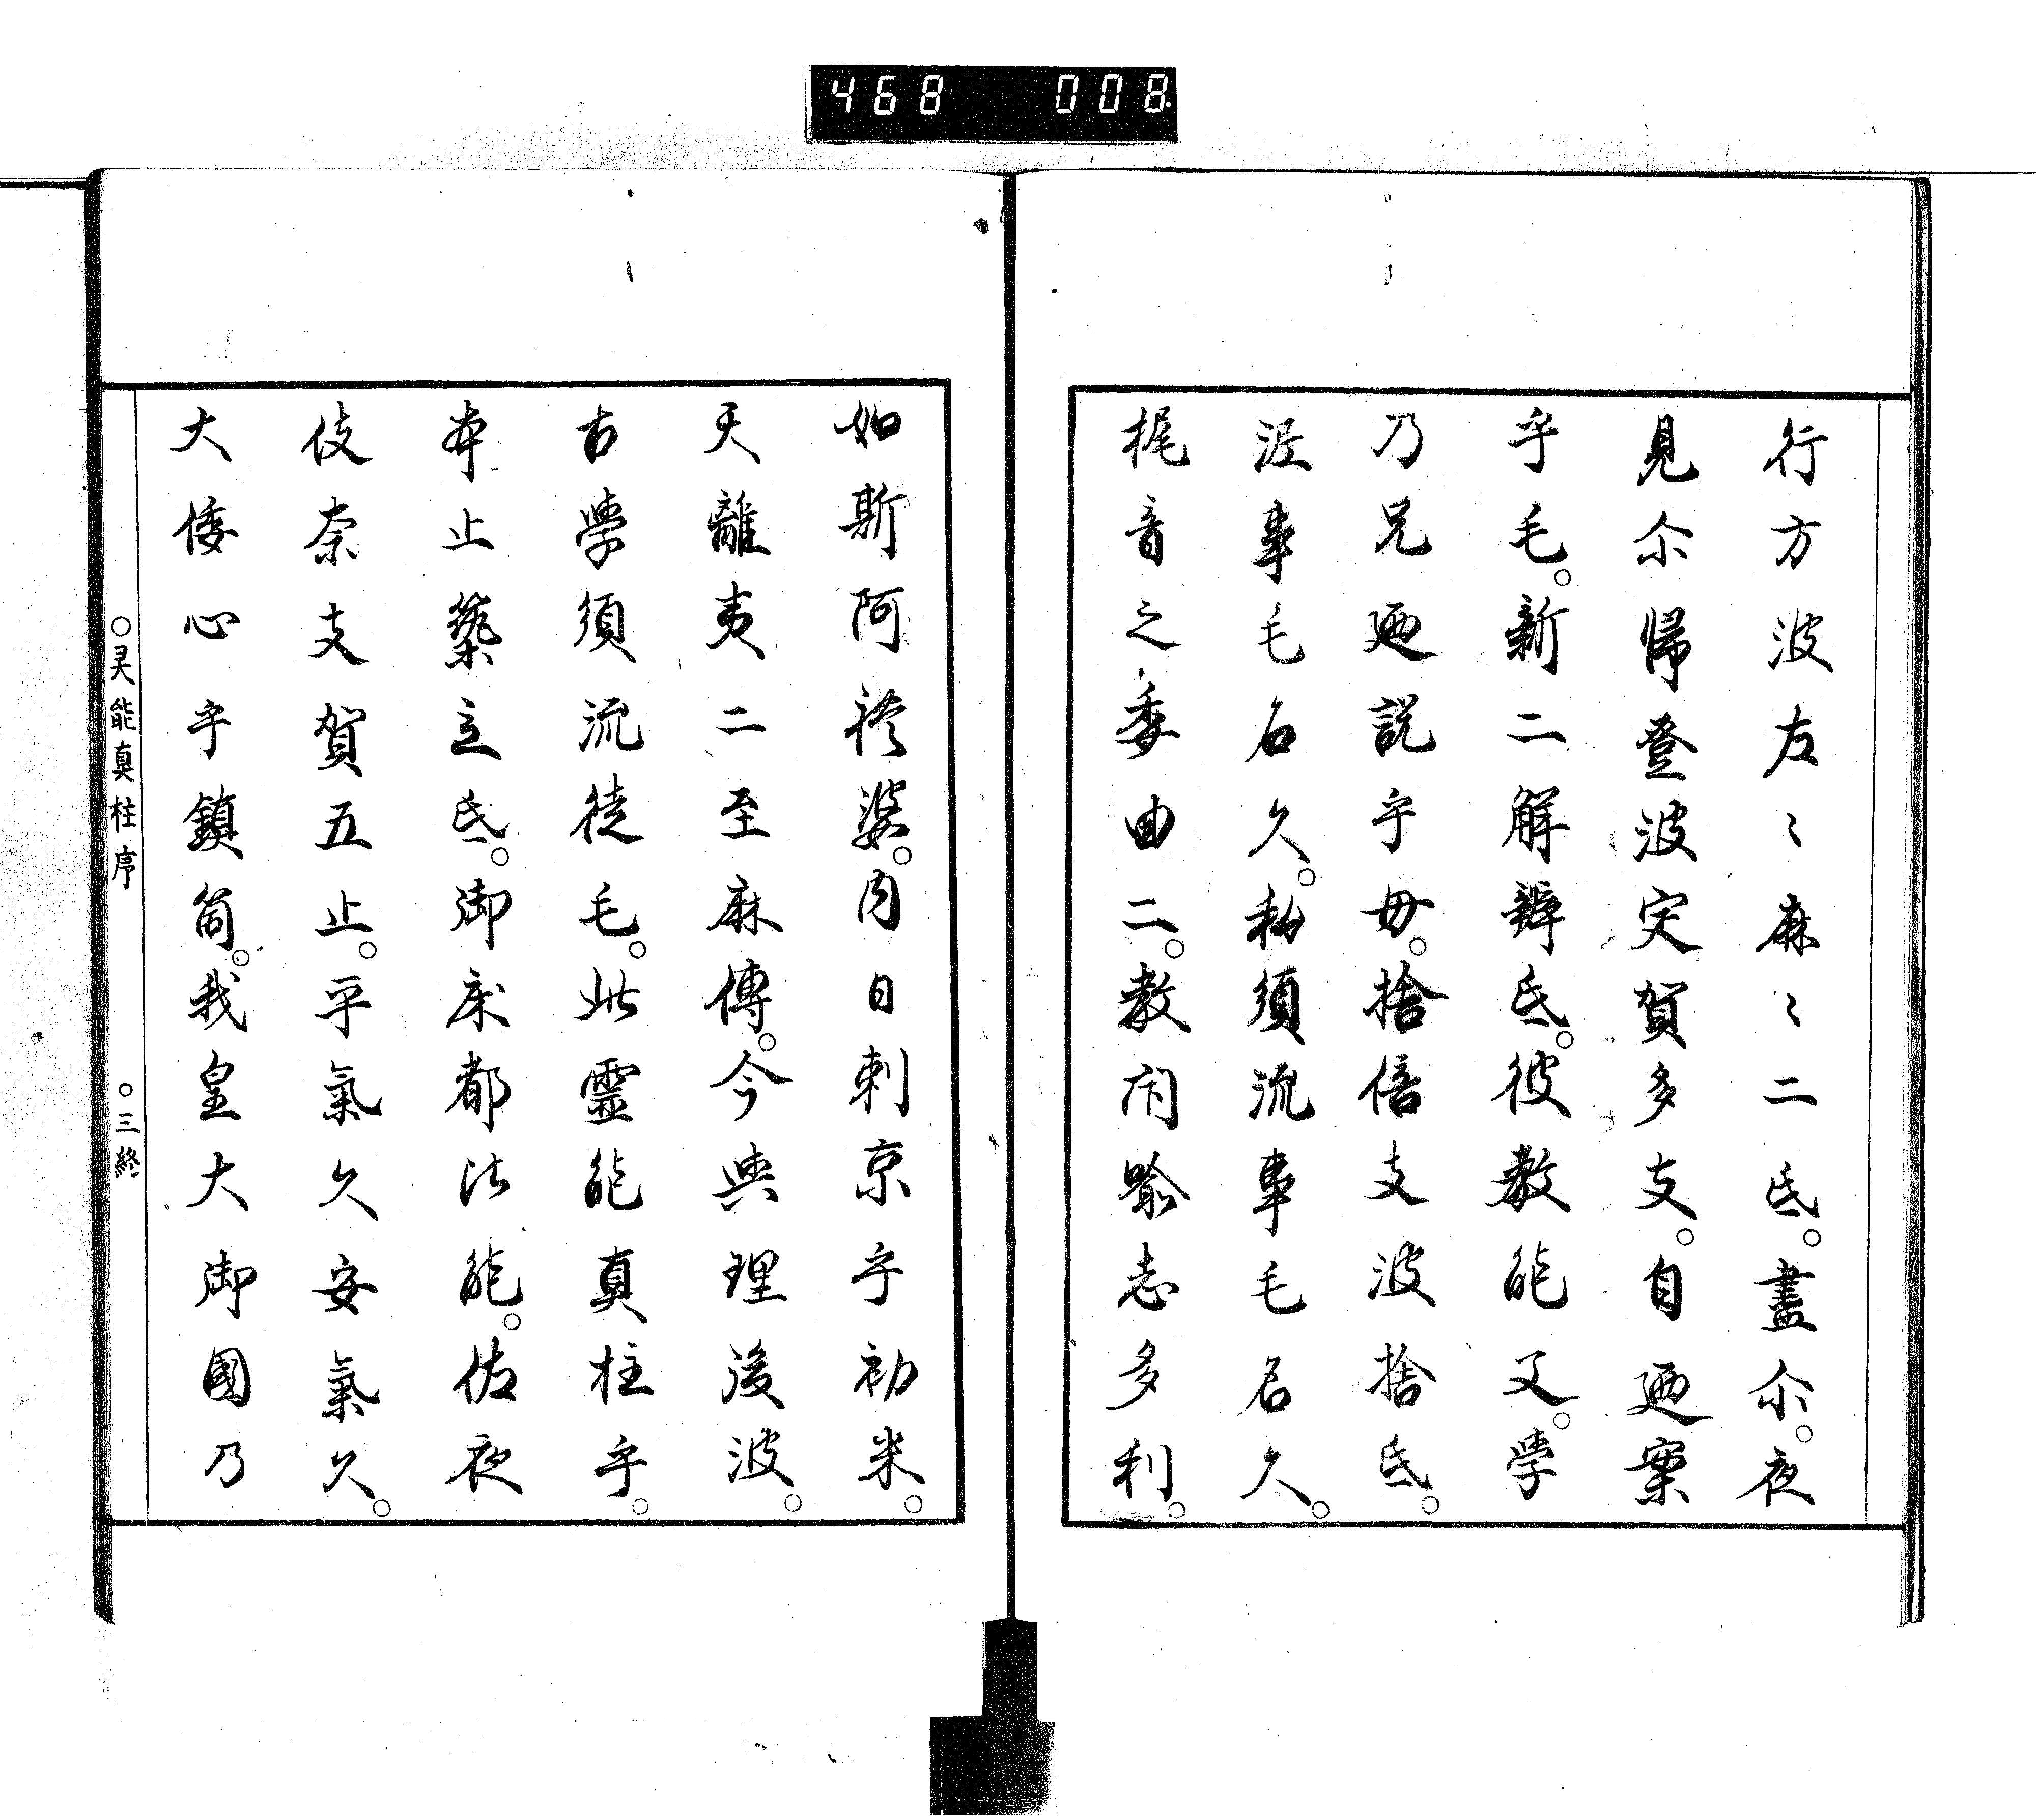 468 008
行方波左〻麻〻二氐。盡尒。夜
見尒帰登波宊賀多支。自廼案
乎毛。新二解辨氐。彼教能文。學
乃兄廼説乎毋。捨倍支波捨氐。
泥事毛毛名久。私須流事毛名久。
梶音之委曲二。教閇喩志多利。
如斯阿礼婆。内日刺京乎初米。
天離夷二至麻傳。今與理後波。
古學須流徒毛。此靈能真柱乎。
本止築立氐。御床都比能。佐夜
伎奈支賀五止。平氣久安氣久。
大倭心乎鎮筒。我皇大御國乃
○灵能真柱序 ○三終